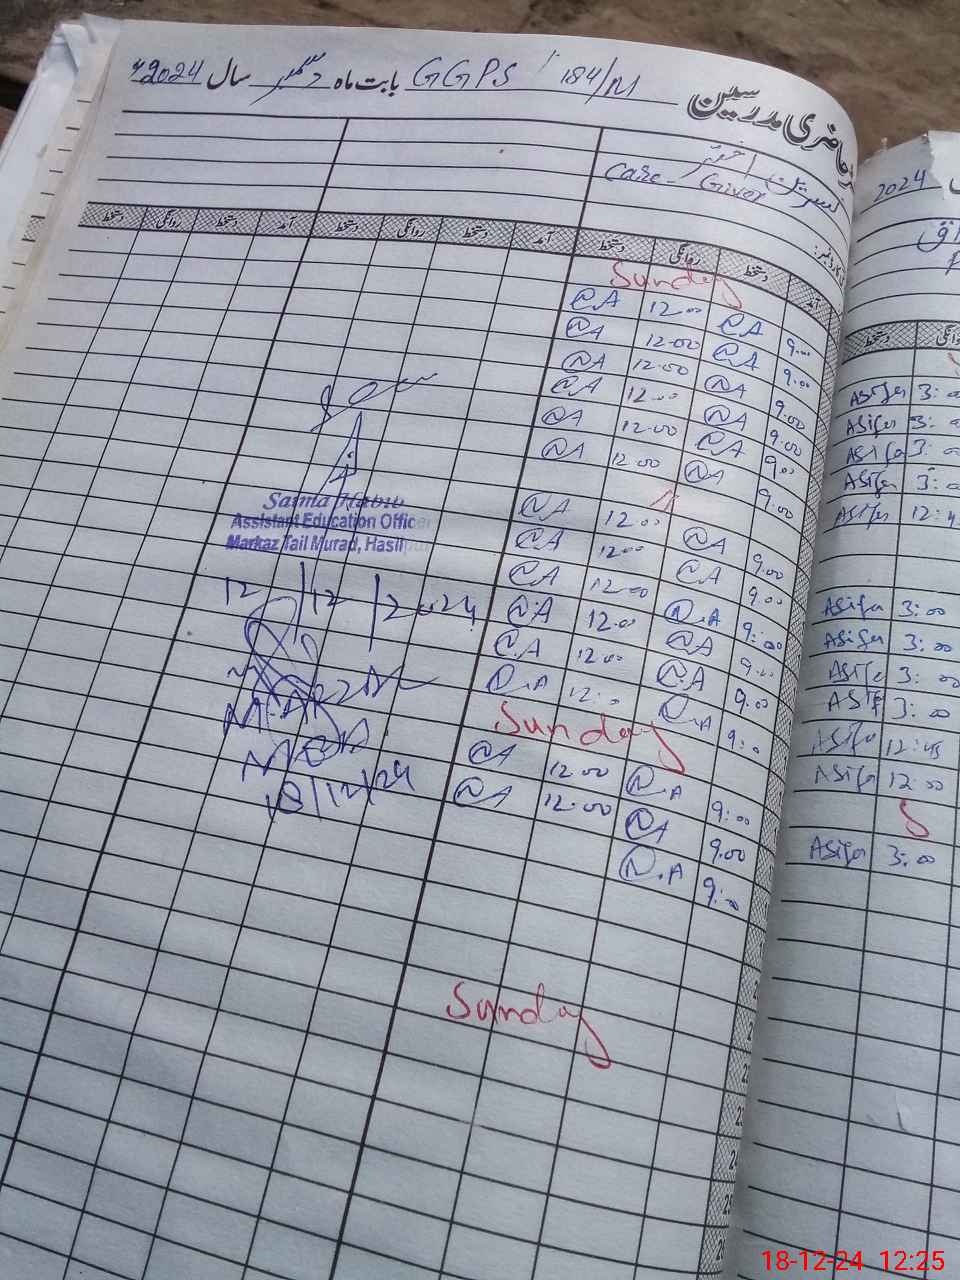 حاضری مدرسین GGPS 184/M بابت ماہ دسمبر سال 2024ء
نسرین اختر
Care-Giver
آمد دستخط روانگی دستخط آمد دستخط روانگی دستخط آمد دستخط روانگی دستخط
Sunday
9.00 N.A 12.00 N.A
9.00 N.A 12.00 N.A
9.00 N.A 12.00 N.A
9.00 N.A 12.00 N.A
9.00 N.A 12.00 N.A
9.00 N.A 12.00 N.A
9.00 N.A 12.00 N.A
9.00 N.A 12.00 N.A
9:00 N.A 12.00 N.A
9.00 N.A 12.00 N.A
9.00 N.A 12.00 N.A
9:00 N.A 12:00 N.A
Sunday
9:00 N.A 12:00 N.A
9.00 N.A 12:00 N.A
9:00 N.A
Sunday
Saima Habib
Assistant Education Officer
Markaz Tail Murad, Hasilpur
12/12/2024
18/12/24
2024
دستخط روانگی
Asifa 3:00
Asifa 3:00
Asifa 3:00
Asifa 3:00
Asifa 12:45
Asifa 3:00
Asifa 3:00
Asifa 3:00
Asifa 3:00
Asifa 12:45
Asifa 12:00
S
Asifa 3:00
18-12-24 12:25